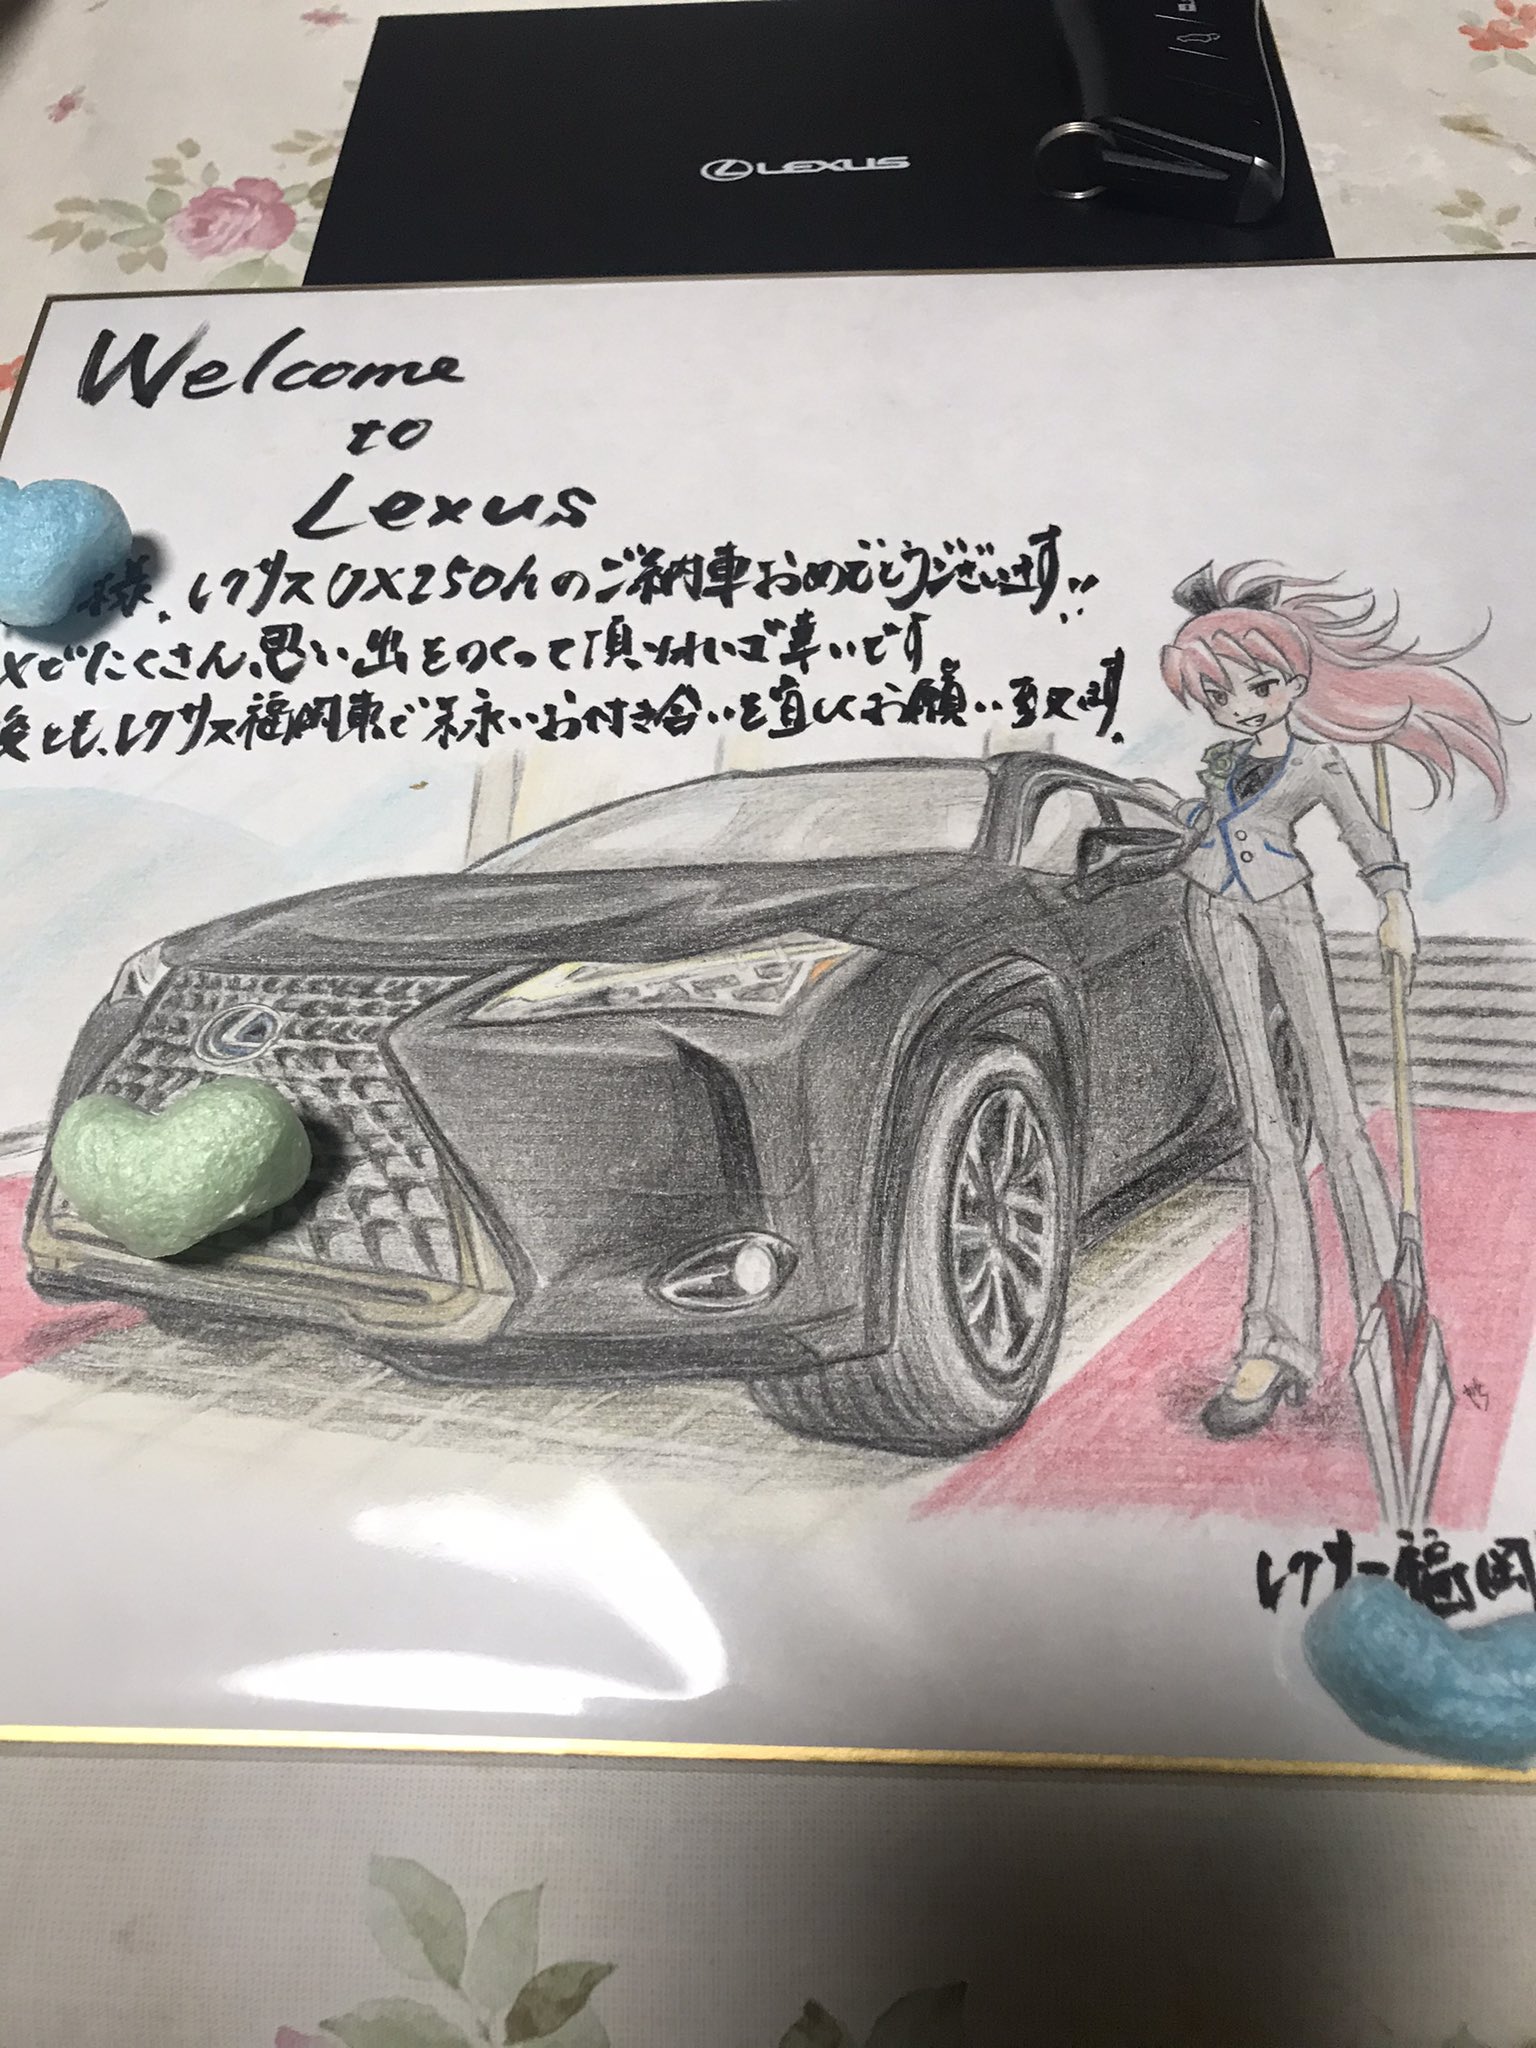 LEXUS
Welcome
to
Lexus
様、レクサスUX250hのご納車おめでとうございます!!
Xでたくさん、思い出をつくって頂ければ幸いです。
後とも、レクサス福岡東で末永いお付き合いを宜しくお願い致します。
レクサス福岡